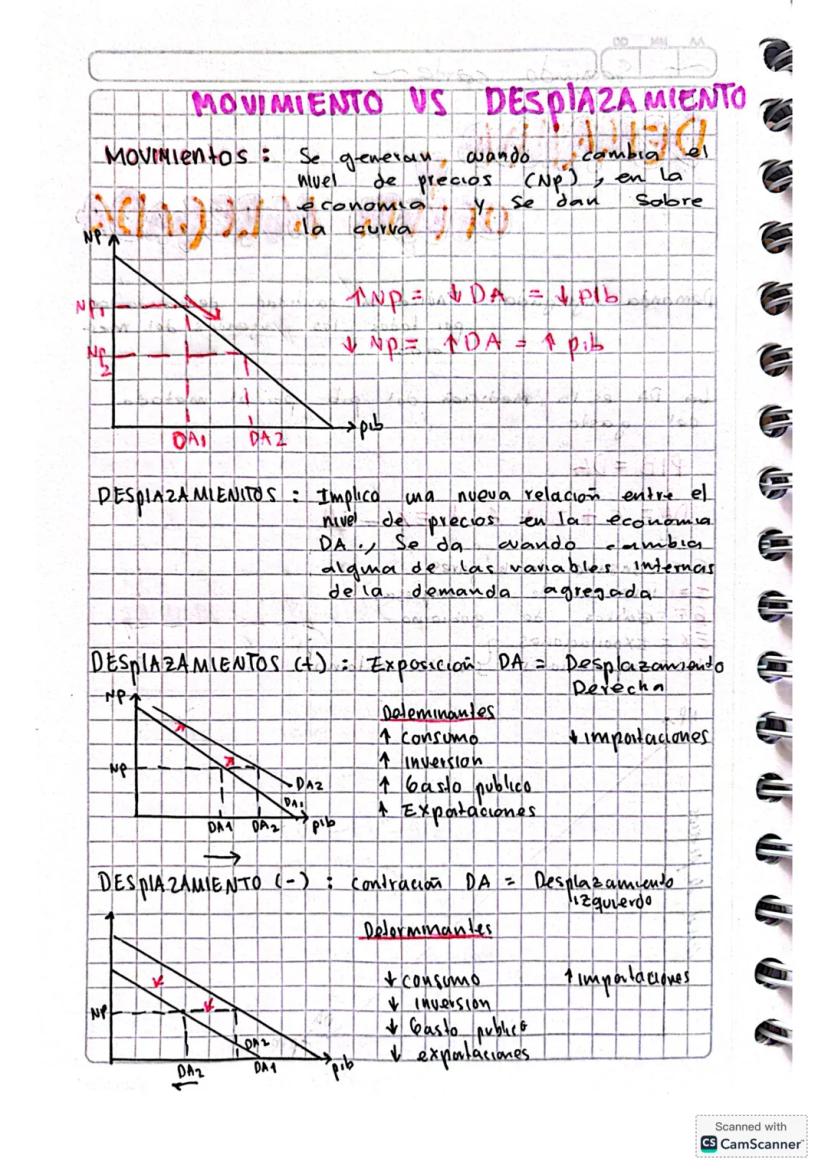 MOVIMIENTO VS DESPlAZAMIENTO
MOVIMIENTOS : Se generan, cuando cambia el
nivel de precios (Np), en la
economia y se dan sobre
la curva
NP
NP1
NP2
DA1 DA2
pib
↑ NP = ↓ DA = ↓ PIb
↓ NP = ↑ DA = ↑ pib
DESPlAZAMIENITOS : Implica una nueva relación entre el
nivel de precios en la economia
DA., Se da cuando cambia
alguna de las variables internas
de la demanda agregada
DESplAZAMIENTOS (+) : Exposición DA = Desplazamiento
Derecha
NP
NP
DA2
DA1
DA1 DA2 pib
Deleminantes
↑ consumo ↓ importaciones
↑ inversion
↑ Gasto publico
↑ Exportaciones
→
DESplAZAMIENTO (-) : contración DA = Desplazamiento
izquierdo
NP
DA2
DA2 DA1 pib
Determinantes
↓ consumo ↑ importaciones
↓ inversion
↓ Gasto publico
↓ exportaciones
Scanned with
CS CamScanner